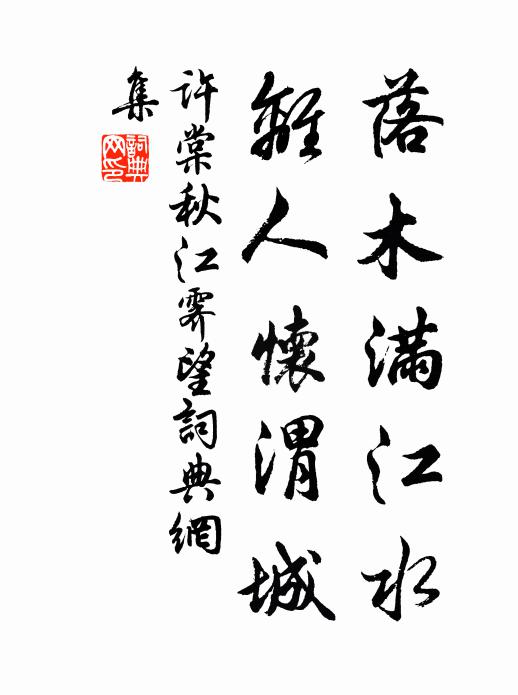 落木滿江水
離人懷渭城
許棠秋江霽望詞典網
集
詞典
网印